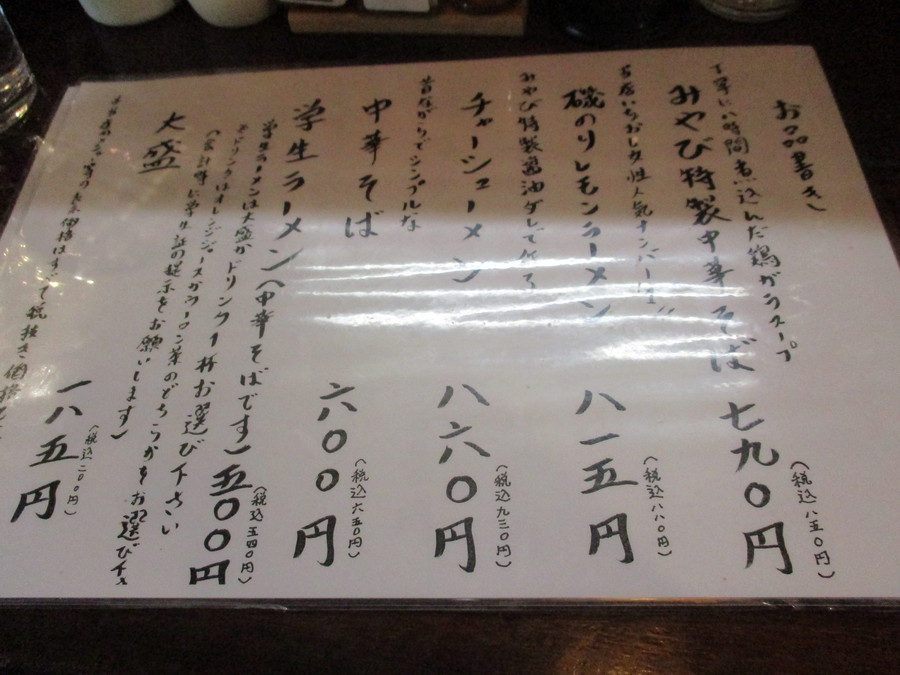 お品書き
丁寧に八時間煮込んだ鶏がらスープ
みやび特製中華そば 七九〇円
(税込八五〇円)
当店いちおし女性人気ナンバー1!!
磯のりレモンラーメン 八一五円
(税込八八〇円)
みやび特製醤油ダレ
チャーシューメン 八六〇円
(税込九三〇円)
昔ながらでシンプルな
中華そば 六〇〇円
(税込六五〇円)
学生ラーメン(中華そばです) 五〇〇円
(税込五四〇円)
学生ラーメンは大盛かドリンク1杯お選び下さい
ドリンクはオレンジジュースかウーロン茶のどちらかをお選び下さ
(お会計時に学生証の提示をお願いします)
大盛 一八五円
(税込二〇〇円)
表示価格はすべて税抜き価格